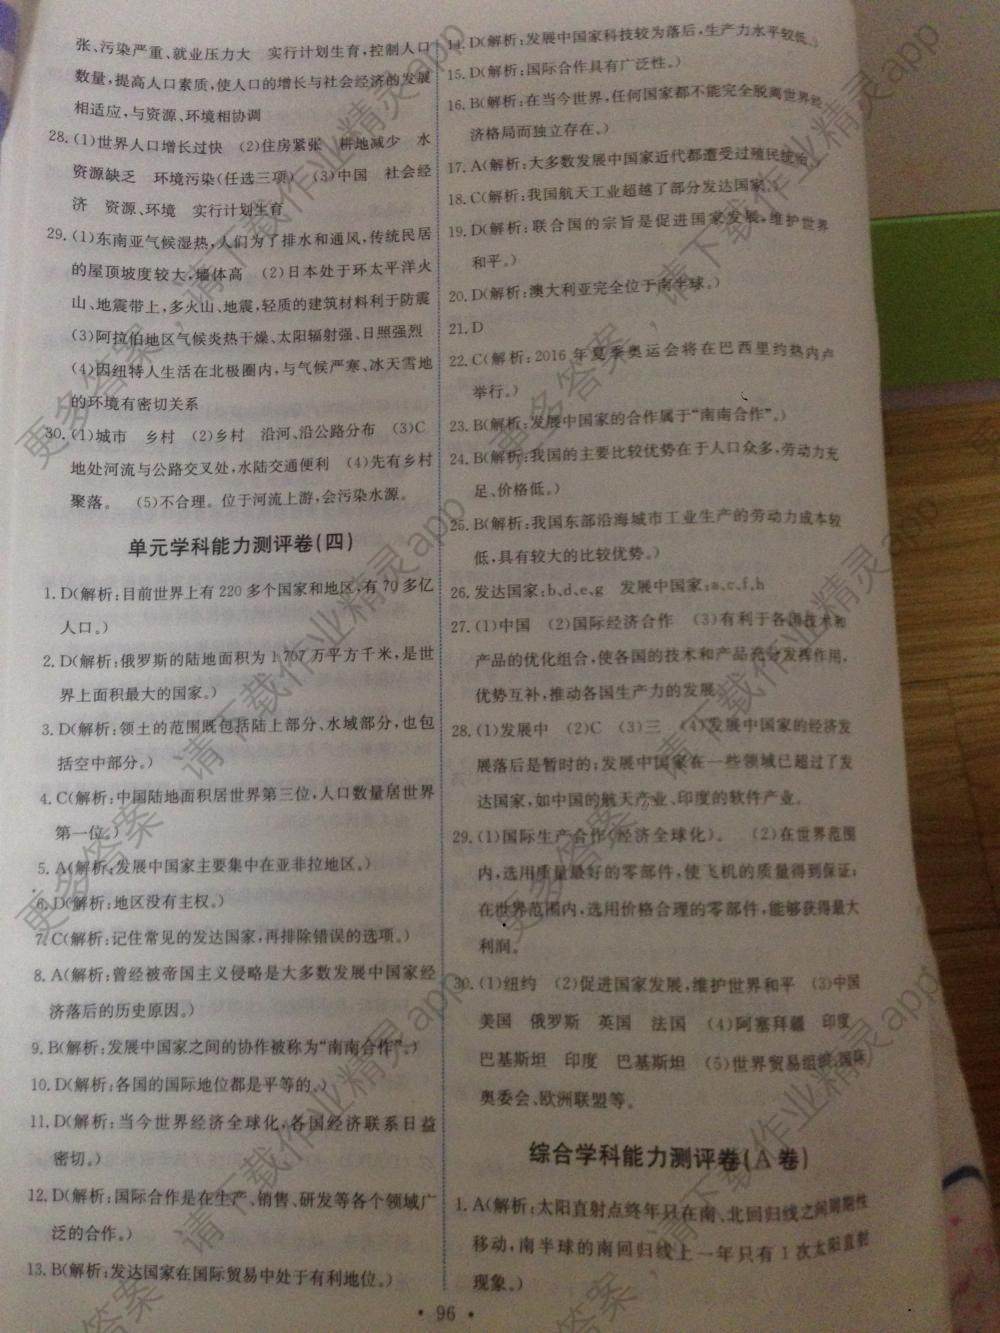 张、污染严重、就业压力大　实行计划生育,控制人口
数量,提高人口素质,使人口的增长与社会经济的发展
相适应,与资源、环境相协调
28.(1)世界人口增长过快　(2)住房紧张　耕地减少　水
资源缺乏　环境污染(任选三项)　(3)中国　社会经
济　资源、环境　实行计划生育
29.(1)东南亚气候湿热,人们为了排水和通风,传统民居
的屋顶坡度较大,墙体高　(2)日本处于环太平洋火
山、地震带上,多火山、地震,轻质的建筑材料利于防震
(3)阿拉伯地区气候炎热干燥、太阳辐射强、日照强烈
(4)因纽特人生活在北极圈内,与气候严寒、冰天雪地
的环境有密切关系
30.(1)城市　乡村　(2)乡村　沿河、沿公路分布　(3)C
地处河流与公路交叉处,水陆交通便利　(4)先有乡村
聚落。　(5)不合理。位于河流上游,会污染水源。
单元学科能力测评卷(四)
1. D(解析:目前世界上有 220 多个国家和地区,有 70 多亿
人口。)
2. D(解析:俄罗斯的陆地面积为 1 707 万平方千米,是世
界上面积最大的国家。)
3. D(解析:领土的范围既包括陆上部分、水域部分,也包
括空中部分。)
4. C(解析:中国陆地面积居世界第三位,人口数量居世界
第一位。)
5. A(解析:发展中国家主要集中在亚非拉地区。)
6. D(解析:地区没有主权。)
7. C(解析:记住常见的发达国家,再排除错误的选项。)
8. A(解析:曾经被帝国主义侵略是大多数发展中国家经
济落后的历史原因。)
9. B(解析:发展中国家之间的协作被称为“南南合作”。)
10. D(解析:各国的国际地位都是平等的。)
11. D(解析:当今世界经济全球化,各国经济联系日益
密切。)
12. D(解析:国际合作是在生产、销售、研发等各个领域广
泛的合作。)
13. B(解析:发达国家在国际贸易中处于有利地位。)
14. D(解析:发展中国家科技较为落后,生产力水平较低。)
15. D(解析:国际合作具有广泛性。)
16. B(解析:在当今世界,任何国家都不能完全脱离世界经
济格局而独立存在。)
17. A(解析:大多数发展中国家近代都遭受过殖民统治。)
18. C(解析:我国航天工业超越了部分发达国家。)
19. D(解析:联合国的宗旨是促进国家发展,维护世界
和平。)
20. D(解析:澳大利亚完全位于南半球。)
21. D
22. C(解析:2016 年夏季奥运会将在巴西里约热内卢
举行。)
23. B(解析:发展中国家的合作属于“南南合作”。)
24. B(解析:我国的主要比较优势在于人口众多,劳动力充
足、价格低。)
25. B(解析:我国东部沿海城市工业生产的劳动力成本较
低,具有较大的比较优势。)
26. 发达国家:b、d、e、g　发展中国家:a、c、f、h
27.(1)中国　(2)国际经济合作　(3)有利于各国技术和
产品的优化组合,使各国的技术和产品充分发挥作用,
优势互补,推动各国生产力的发展
28.(1)发展中　(2)C　(3)三　(4)发展中国家的经济发
展落后是暂时的;发展中国家在一些领域已超过了发
达国家,如中国的航天产业、印度的软件产业。
29.(1)国际生产合作(经济全球化)。　(2)在世界范围
内,选用质量最好的零部件,使飞机的质量得到保证;
在世界范围内,选用价格合理的零部件,能够获得最大
利润。
30.(1)纽约　(2)促进国家发展,维护世界和平　(3)中国
美国　俄罗斯　英国　法国　(4)阿塞拜疆　印度
巴基斯坦　印度　巴基斯坦　(5)世界贸易组织、国际
奥委会、欧洲联盟等。
综合学科能力测评卷(A 卷)
1. A(解析:太阳直射点终年只在南、北回归线之间周期性
移动,南半球的南回归线上一年只有 1 次太阳直射
现象。)
• 96 •
更多答案,请下载作业精灵app
更多答案,请下载作业精灵app
更多答案,请下载作业精灵app
更多答案,请下载作业精灵app
更多答案,请下载作业精灵app
更多答案,请下载作业精灵app